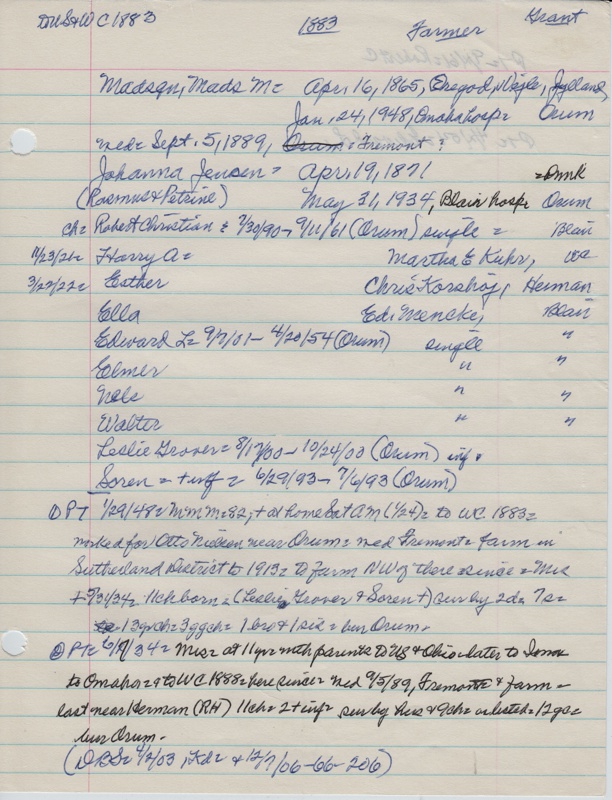 DUS&WC 1883 1883 Farmer Grant
Madsen, Mads M= Apr. 16, 1865, Oregod, Vejle, Jylland,
Jan. 24, 1948, Omaha hosp= Orum
med= Sept. 5, 1889, Orum= Fremont=
Johanna Jensen= Apr. 19, 1871 =Dnmk
(Rasmus & Petrine) May 31, 1934, Blair hosp= Orum
ch= Robert Christian= 7/30/90-9/11/61 (Orum) single= Blair
11/23/21= Harry A= Martha E Kuhr, WC
3/22/22= Esther Chris Korshoj, Herman
Ella Ed. Mencke, Blair
Edward L= 9/7/01-4/20/54 (Orum) single "
Elmer " "
Nels " "
Walter " "
Leslie Grover= 8/17/00-10/24/03 (Orum) inf+
Soren=+inf= 6/29/93-7/6/93 (Orum)
① PT 1/29/48= MMM=82,+ at home Sat AM (1/24)= to WC 1883=
worked for Otto Nielsen near Orum= med Fremont= farm in
Sutherland District to 1913= to farm NW of there since= Mrs
+5/31/34= 11ch born= (Leslie Grover & Soren+) sur by 2d= 7s=
13gch= 3ggch= 1 bro & 1 sis= bur Orum.
② PT= 6/7/34= Mrs= at 11yr with parents to US & Ohio= later to Iowa
to Omaha= to WC 1888= here since= med 9/5/89, Fremont= & farm=
last near Herman (RH) 11ch= 2+inf= sur by hus & 9ch= as listed= 12gc=
bur Orum.
(DBS= 4/2/03, Kd= & 12/7/06-66-206)